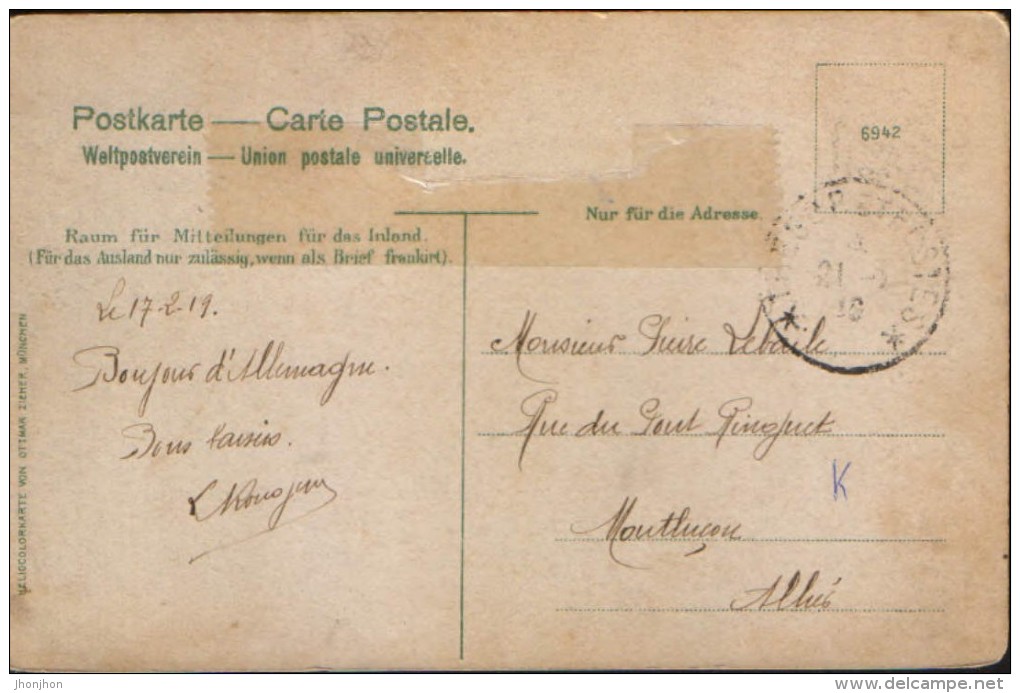 Postkarte — Carte Postale.
Weltpostverein — Union postale universelle.
6942
Nur für die Adresse.
Raum für Mitteilungen für das Inland.
(Für das Ausland nur zulässig, wenn als Brief frankirt).
TRESOR ET POSTES
21
Le 17-2-19.
Bonjour d'Allemagne.
Bons baisers.
Monsieur
Rue du Pont
Montluçon
K
HELIOCOLORKARTE VON OTTMAR ZIEHER, MÜNCHEN
jhonjhon
© delcampe.net